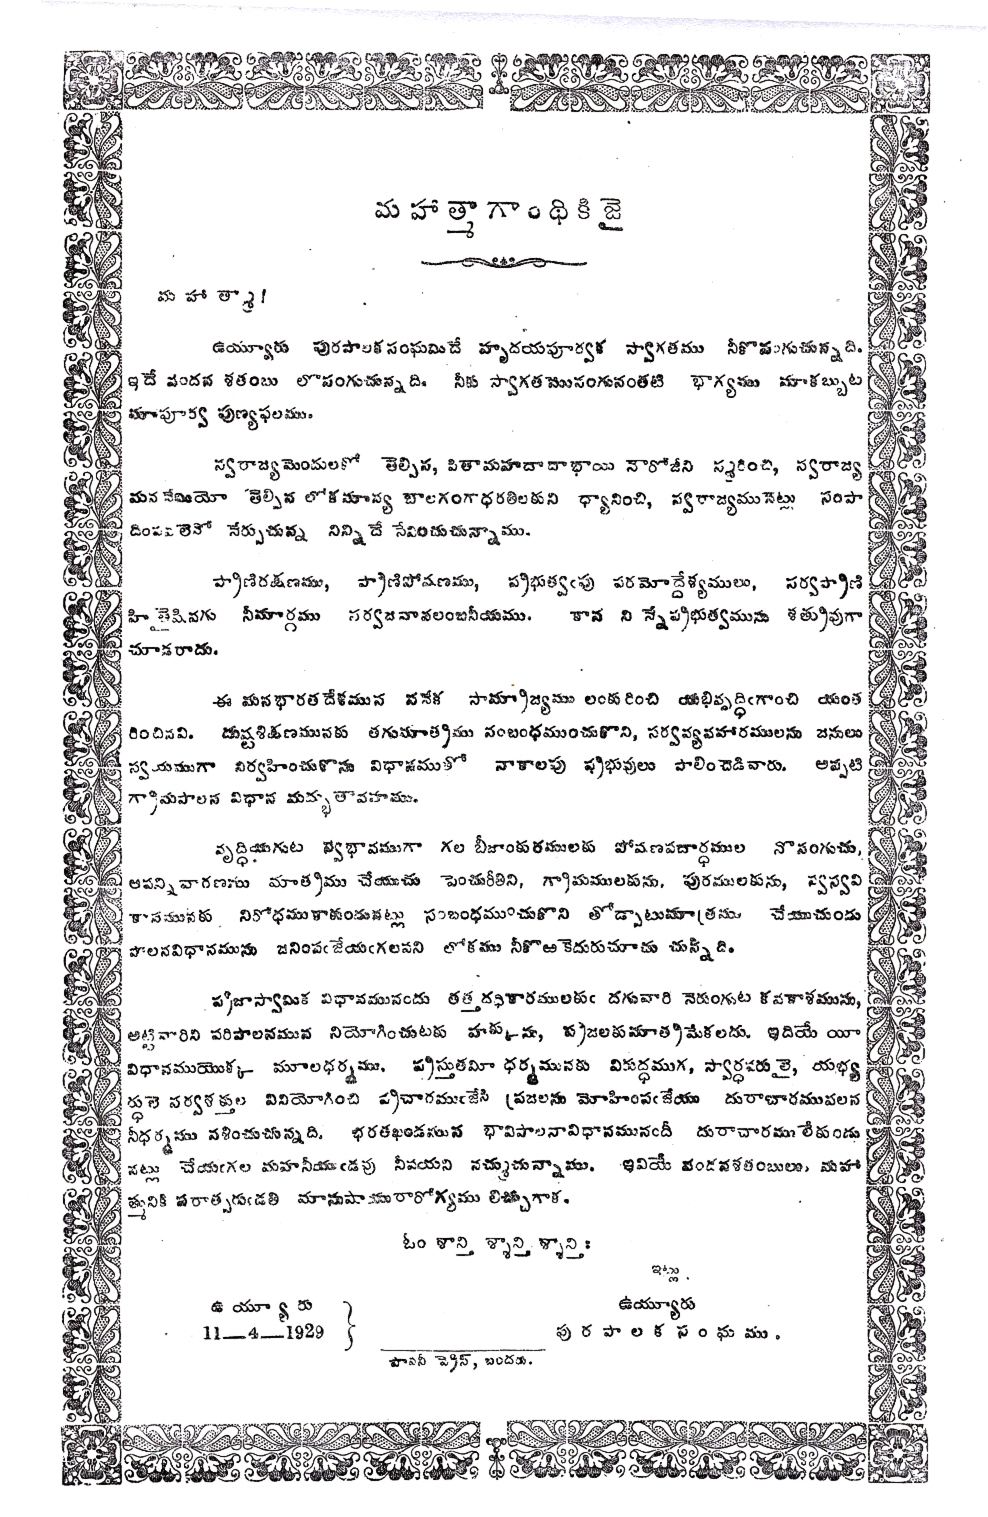 మహాత్మాగాంధికిజై
మహాత్మా!
ఉయ్యూరు పురపాలకసంఘమిదే హృదయపూర్వక స్వాగతము నీకొసంగుచున్నది.
ఇదే వందన శతంబు లొసంగుచున్నది. నీకు స్వాగతమొసంగునంతటి భాగ్యము మాకబ్బుట
మాపూర్వ పుణ్యఫలము.
స్వరాజ్యమెందులకో తెల్పిన, పితామహదాదాభాయి నౌరోజీని స్మరించి, స్వరాజ్య
మననేమియో తెల్పిన లోకమాన్య బాలగంగాధరతిలకుని ధ్యానించి, స్వరాజ్యమునెట్లు సంపా
దింపవలెనో నేర్పుచున్న నిన్నిదే సేవించుచున్నాము.
ప్రాణిరక్షణము, ప్రాణిపోషణము, ప్రభుత్వఁపు పరమోద్దేశ్యములు, సర్వప్రాణి
హితైషివగు నీమార్గము సర్వజనావలంబనీయము. కాన నిన్నేప్రభుత్వమును శత్రువుగా
చూడరాదు.
ఈ మనభారతదేశమున ననేక సామ్రాజ్యము లంకురించి యభివృద్ధిఁగాంచి యంత
రించినవి. దుష్టశిక్షణమునకు తగుమాత్రము సంబంధముంచుకొని, సర్వవ్యవహారములను జనులు
స్వయముగా నిర్వహించుకొను విధానముతో నాకాలపు ప్రభువులు పాలించెడివారు. అప్పటి
గ్రామపాలన విధాన మద్భుతావహము.
వృద్ధియగుట స్వభావముగా గల బీజాంకురములకు పోషణపదార్థముల నొసంగుచు,
ఆపన్నివారణము మాత్రము చేయుచు పెంచురీతిని, గ్రామములకును, పురములకును, స్వస్వవి
కాసమునకు నిరోధముకాకుండునట్లు సంబంధముంచుకొని తోడ్పాటుమాత్రము చేయుచుండు
పాలనవిధానమును జనింపఁజేయఁగలవని లోకము నీకొఱ కెదురుచూచు చున్నది.
ప్రజాస్వామిక విధానమునందు తత్తదధికారములకుఁ దగువారి నెరుంగుట కవకాశమును,
అట్టివారిని పరిపాలనమున నియోగించుటకు హక్కును, ప్రజలకుమాత్రమేకలదు. ఇదియే యీ
విధానముయొక్క మూలధర్మము. ప్రస్తుతమీ ధర్మమునకు విరుద్ధముగ, స్వార్థపరులై, యభ్య
ర్థులె సర్వశక్తుల వినియోగించి ప్రచారముఁజేసి ప్రజలను మోహింపఁజేయు దురాచారమువలన
నీధర్మము నశించుచున్నది. భరతఖండమున భావిపాలనావిధానమునందీ దురాచారము లేకుండు
నట్లు చేయఁగల మహనీయుఁడవు నీవయని నమ్ముచున్నాము. ఇవియే వందనశతంబులు, మహా
త్మునికి పరాత్పరుఁడతి మానుషాయురారోగ్యము లిచ్చుగాక.
ఓం శాన్తి శ్శాన్తి శ్శాన్తిః
ఇట్లు,
ఉయ్యూరు
11—4—1929
ఉయ్యూరు
పురపాలకసంఘము.
పావని ప్రెస్, బందరు.